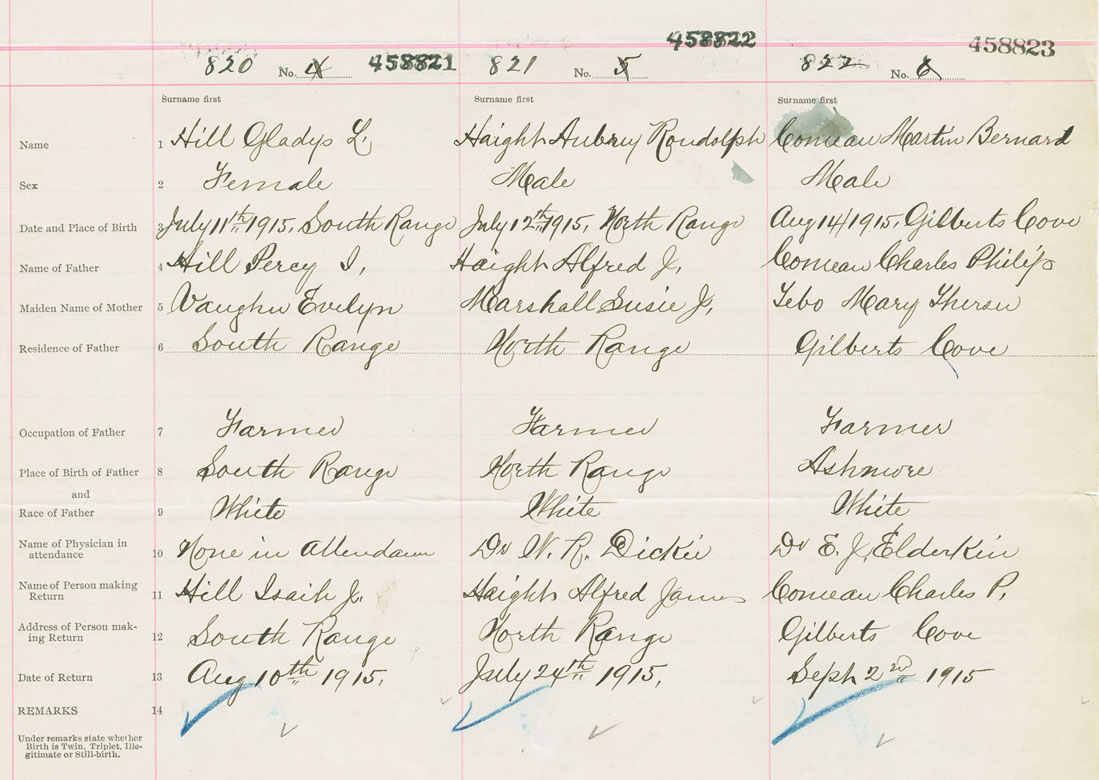 458822
458823
820 No. 4 458821 821 No. 5 822 No. 6
Surname first Surname first Surname first
Name 1 Hill Gladys L. Haight Aubrey Rondolph Comeau Martin Bernard
Sex 2 Female Male Male
Date and Place of Birth 3 July 11th 1915, South Range July 12th 1915, North Range Aug 14/1915, Gilberts Cove
Name of Father 4 Hill Percy I, Haight Alfred J, Comeau Charles Philip
Maiden Name of Mother 5 Vaughn Evelyn Marshall Susie J, Tebo Mary
Residence of Father 6 South Range North Range Gilberts Cove
Occupation of Father 7 Farmer Farmer Farmer
Place of Birth of Father 8 South Range North Range Ashmore
and
Race of Father 9 White White White
Name of Physician in
attendance 10 None in Attendance Dr W. R. Dickie Dr E. J. Elderkin
Name of Person making
Return 11 Hill Isaih J. Haight Alfred James Comeau Charles P.
Address of Person mak-
ing Return 12 South Range North Range Gilberts Cove
Date of Return 13 Aug 10th 1915, July 24th 1915, Sept 2nd 1915
REMARKS 14
Under remarks state whether
Birth is Twin, Triplet, Ille-
gitimate or Still-birth.